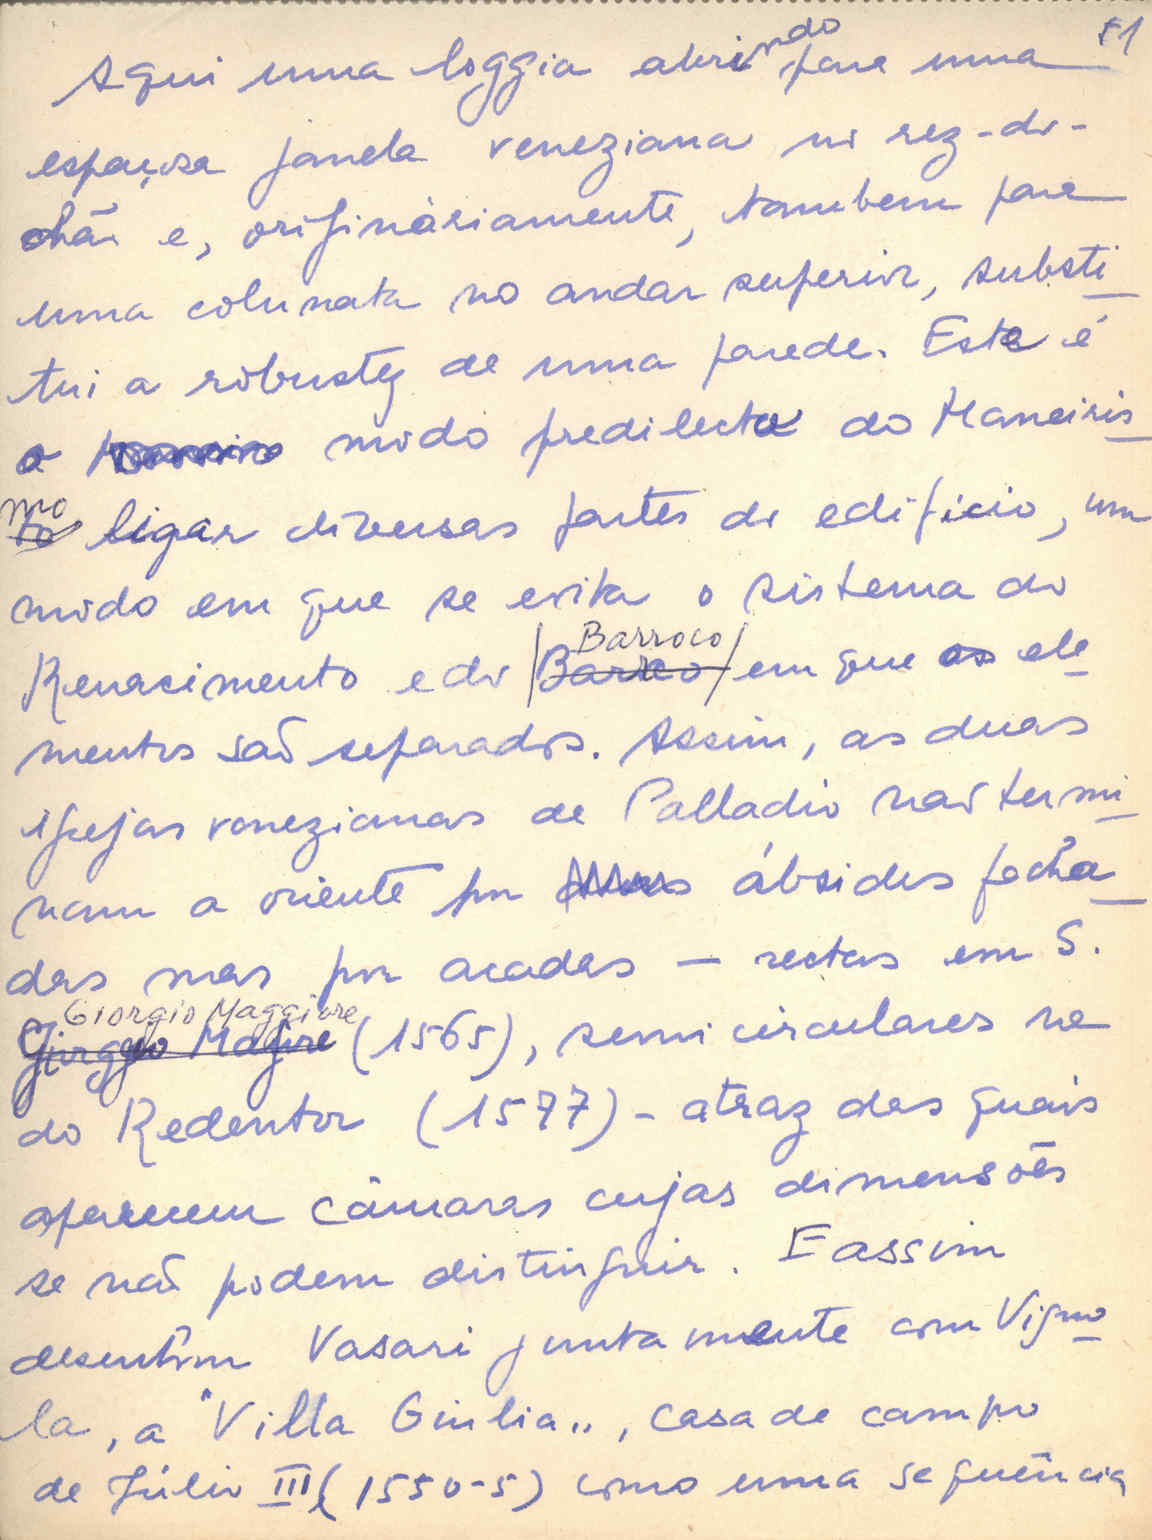 51
Aqui uma loggia abrindo para uma
espaçosa janela veneziana no rez-do-
chão e, originàriamente, tambem para
uma colunata no andar superior, substi
tui a robustez de uma parede. Este é
o modo predilecto do Maneiris
mo ligar diversas partes do edificio, um
modo em que se evita o sistema do
Renascimento e do Barroco em que os ele
mentos são separados. Assim, as duas
igrejas venezianas de Palladio não termi
nam a oriente por ábsides fecha
das mas por arcadas — rectas em S.
Giorgio Maggiore (1565), semicirculares na
do Redentor (1577) - atraz das quais
aparecem câmaras cujas dimensões
se não podem distinguir. E assim
Vasari juntamente com Vigno
la, a "Villa Giulia", casa de campo
de Júlio III (1550-5) como uma sequência